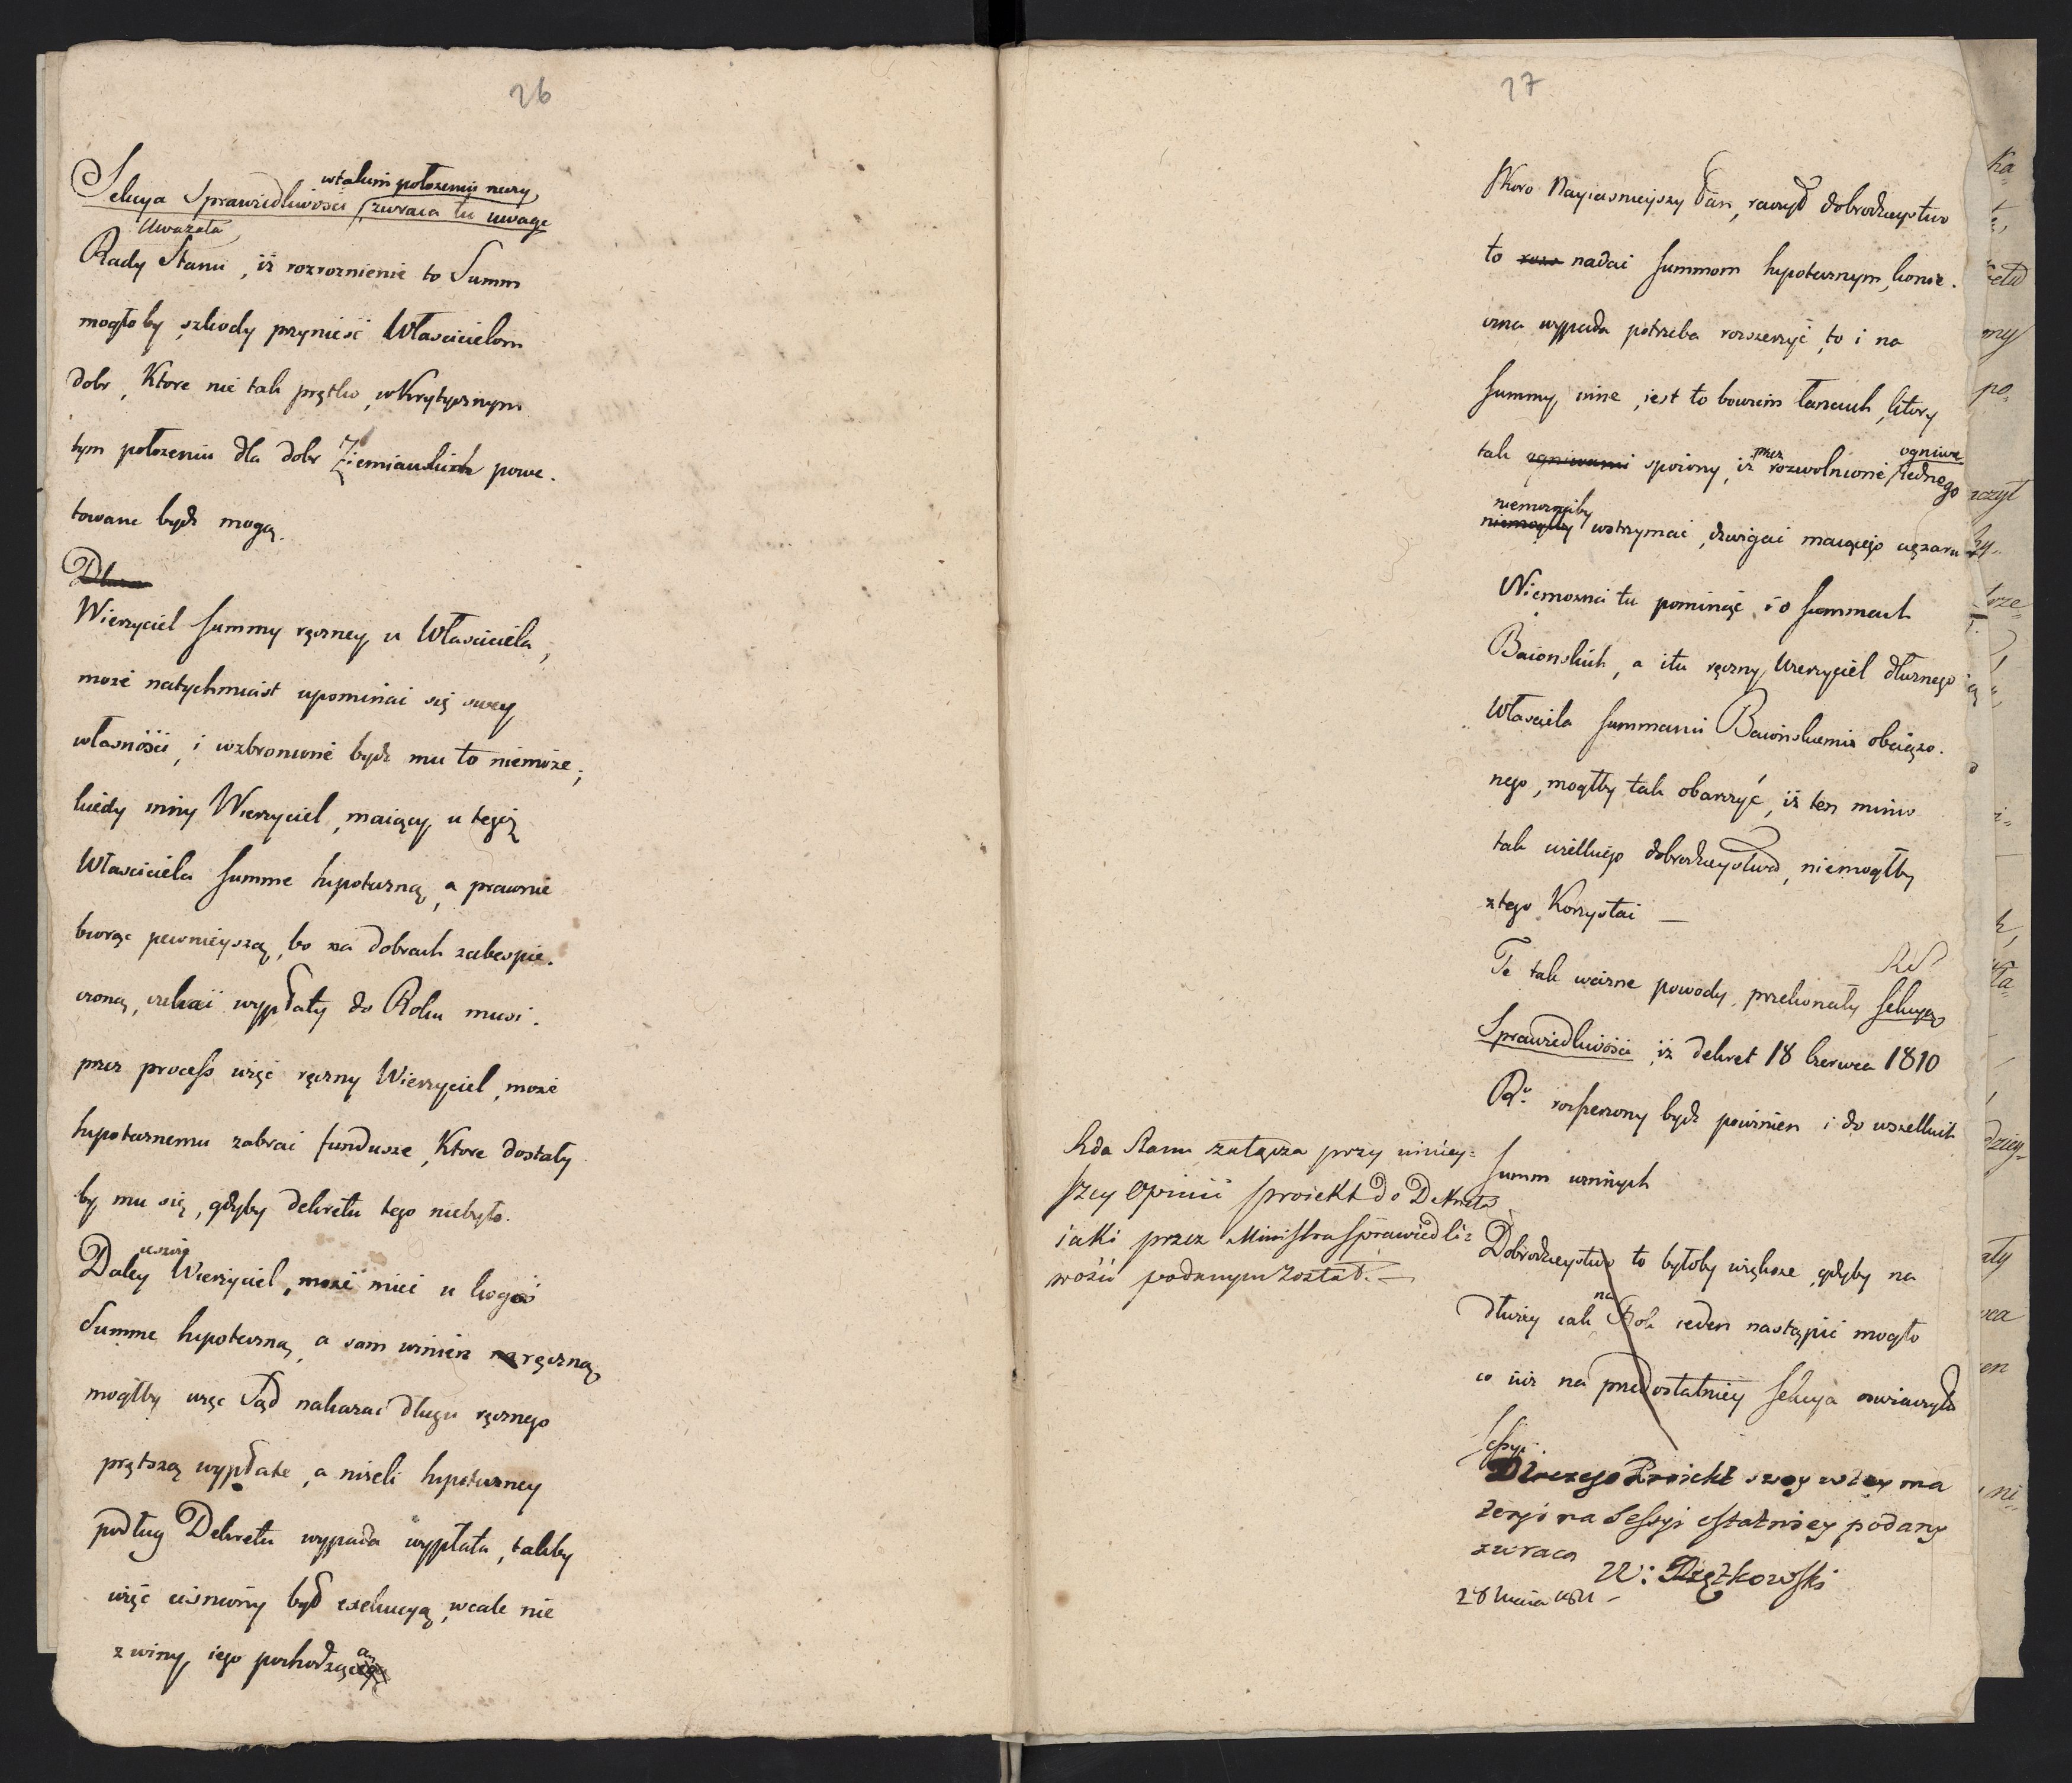 26
w takim położeniu rzeczy
Sekcya Sprawiedliwości zwraca tu uwagę
Uważała
Rady Stanu, iż rozroznienie to Summ
mogłoby szkody przynieść Właścicielom
dobr, Ktore nie tak prętko, w Krytycznym
tym położeniu dla dobr Ziemianskich powe.
towane bydz mogą.
Wierzyciel Summy ręczney u Właściciela,
może natychmiast upominać się swey
własności, i wzbronione bydz mu to niemoże;
kiedy inny Wierzyciel, maiący u tegoż
Właściciela Summe hipoteczną, a prawnie
biorąc pewnieyszą, bo na dobrach zabespie.
czoną, czekać wypłaty do Roku musi.
przez process więc ręczny Wierzyciel, może
hipotecznemu zabrać fundusze, Ktore dostały
by mu się, gdyby dekretu tego niebyło.
Daley Wierzyciel, może mieć u kogoś
Summe hipoteczną, a sam winien ręczną
mogłby więc Sąd nakazać długu ręcznego
prętszą wypłate, a niżeli hipoteczney
podług Dekretu wypada wypłata, takby
więc cisniony był exekucyą, wcale nie
z winy iego pochodzącą
27
Skoro Nayiasnieyszy Pan, raczył dobrodzieystwo
to nadać Summom hipotecznym, konie.
czna wypada potrzeba rozszerzyć to i na
Summy inne, iest to bowiem łancuch, ktory
tak ogniwami spoiony, iż przez rozwolnione ogniwa iednego
niemożnaby
niemogłby wstrzymać, dzwigać maiącego ciężaru
Niemożna tu pominąć i o Summach
Baionskich, a i tu ręczny Wierzyciel dłużnego
Właściciela Summami Baionskiemi obciążo.
nego, mogłby tak obarczyć, iż ten mimo
tak wielkiego dobrodzieystwa, niemogłby
z tego Korzystać —
Te tak ważne powody, przekonały Sekcyą
Sprawiedliwości, iż dekret 18 Czerwca 1810
Ru. rozszerzony bydz powinien i do wszelkich
Summ winnych
Rda Stanu załącza przy niniey=
szey Opinii proiekt do Dekretu
iaki przez Ministra Sprawiedli=
wości podanym został. —
Dobrodzieystwo to byłoby większe, gdyby na
dłużey iak na Rok ieden nastąpić mogło
co iuż na przedostatniey Sekcya oswiadczyła
Sessyi.
Dlaczego Proiekt swoy w tey ma
teryi na Sessyi ostatniey podany
zwraca
28 1811